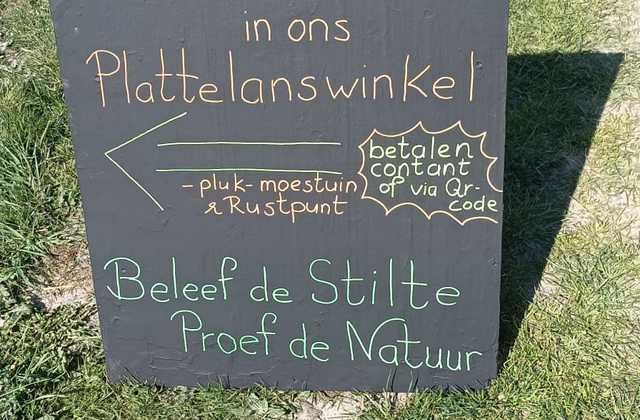 in ons
Plattelanswinkel
betalen
contant
of via Qr-
code
- pluk- moestuin
& Rustpunt
Beleef de Stilte
Proef de Natuur